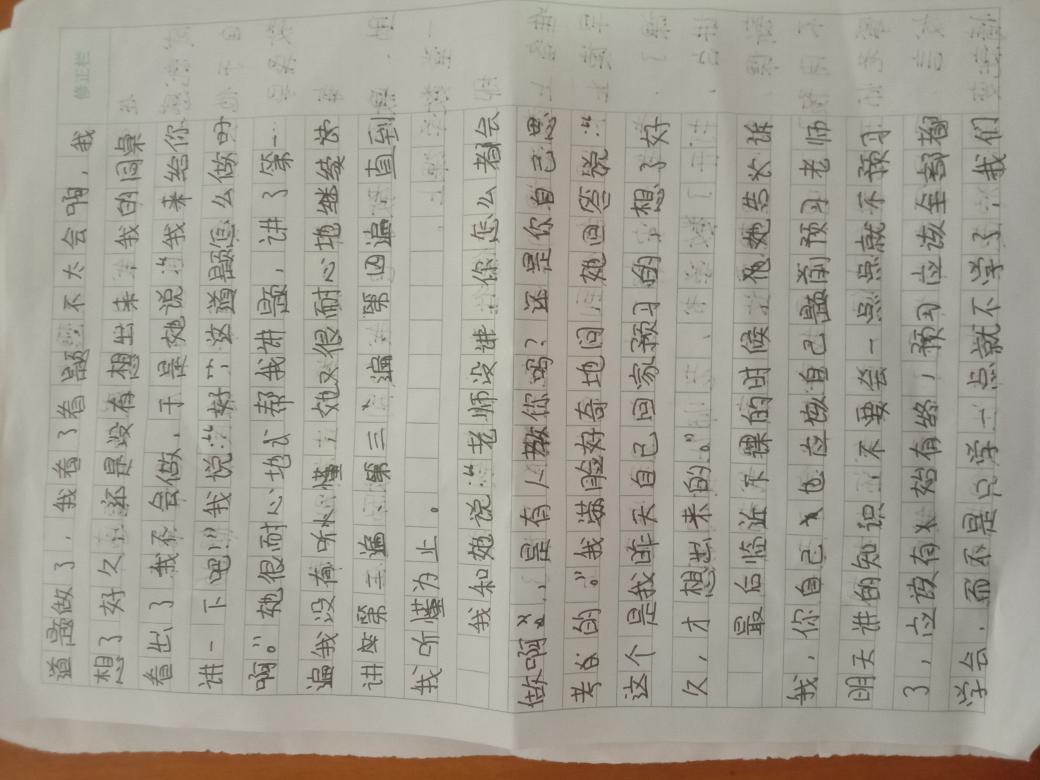 修正栏
道题做了，我看了看题，不太会啊，我
想了好久，还是没有想出来，我的同桌
看出了我不会做，于是她说：“我来给你
讲一下吧！”我说：“好，这道题怎么做呀
啊。”她很耐心地帮我讲题，讲了第一
遍我没有听懂，她又很耐心地继续讲
讲第二遍、第三遍、第四遍，直到
我听懂为止。
我和她说：“老师没讲，你怎么都会
做啊，是有人教你吗？还是你自己思
考的。”我满脸好奇地问，她回答说：“
这个是我昨天自己回家预习的，想了好
久，才想出来的。”
最后临近下课的时候，她告诉
我，你自己也应该自己提前预习老师
明天讲的知识，不要会一点点就不预习
了，应该有始有终，预习应该全部都
学会，而不是只学一点就不学了，我们